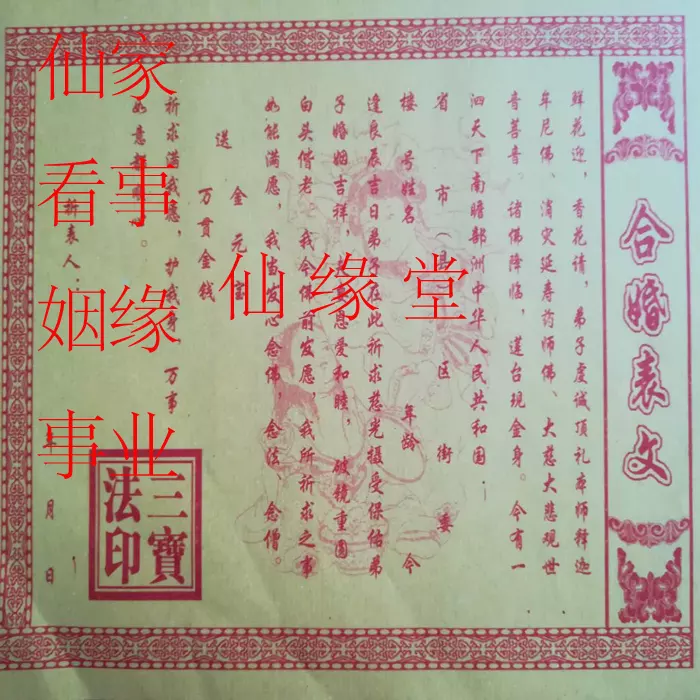 合婚表文
鲜花迎，香花请，弟子虔诚顶礼本师释迦
牟尼佛、消灾延寿药师佛、大慈大悲观世
音菩音。诸佛降临，莲台现金身。今有一
泗天下南瞻部洲中华人民共和国：
省 市 区 街 委
楼 号姓名 年龄 今
逢良辰吉日弟子在此祈求慈光摄受保佑弟
子婚姻吉祥，恩爱和睦，破镜重圆
白头偕老。我今佛前发愿，我所祈求之事
如能满愿，我当发心念佛，念法，念僧。
送 金元宝
万贯金钱
祈求满我愿，护我身，万事
如意
祈表人：
年 月 日
三寳
法印
仙家
看事
姻缘
事业
仙缘堂